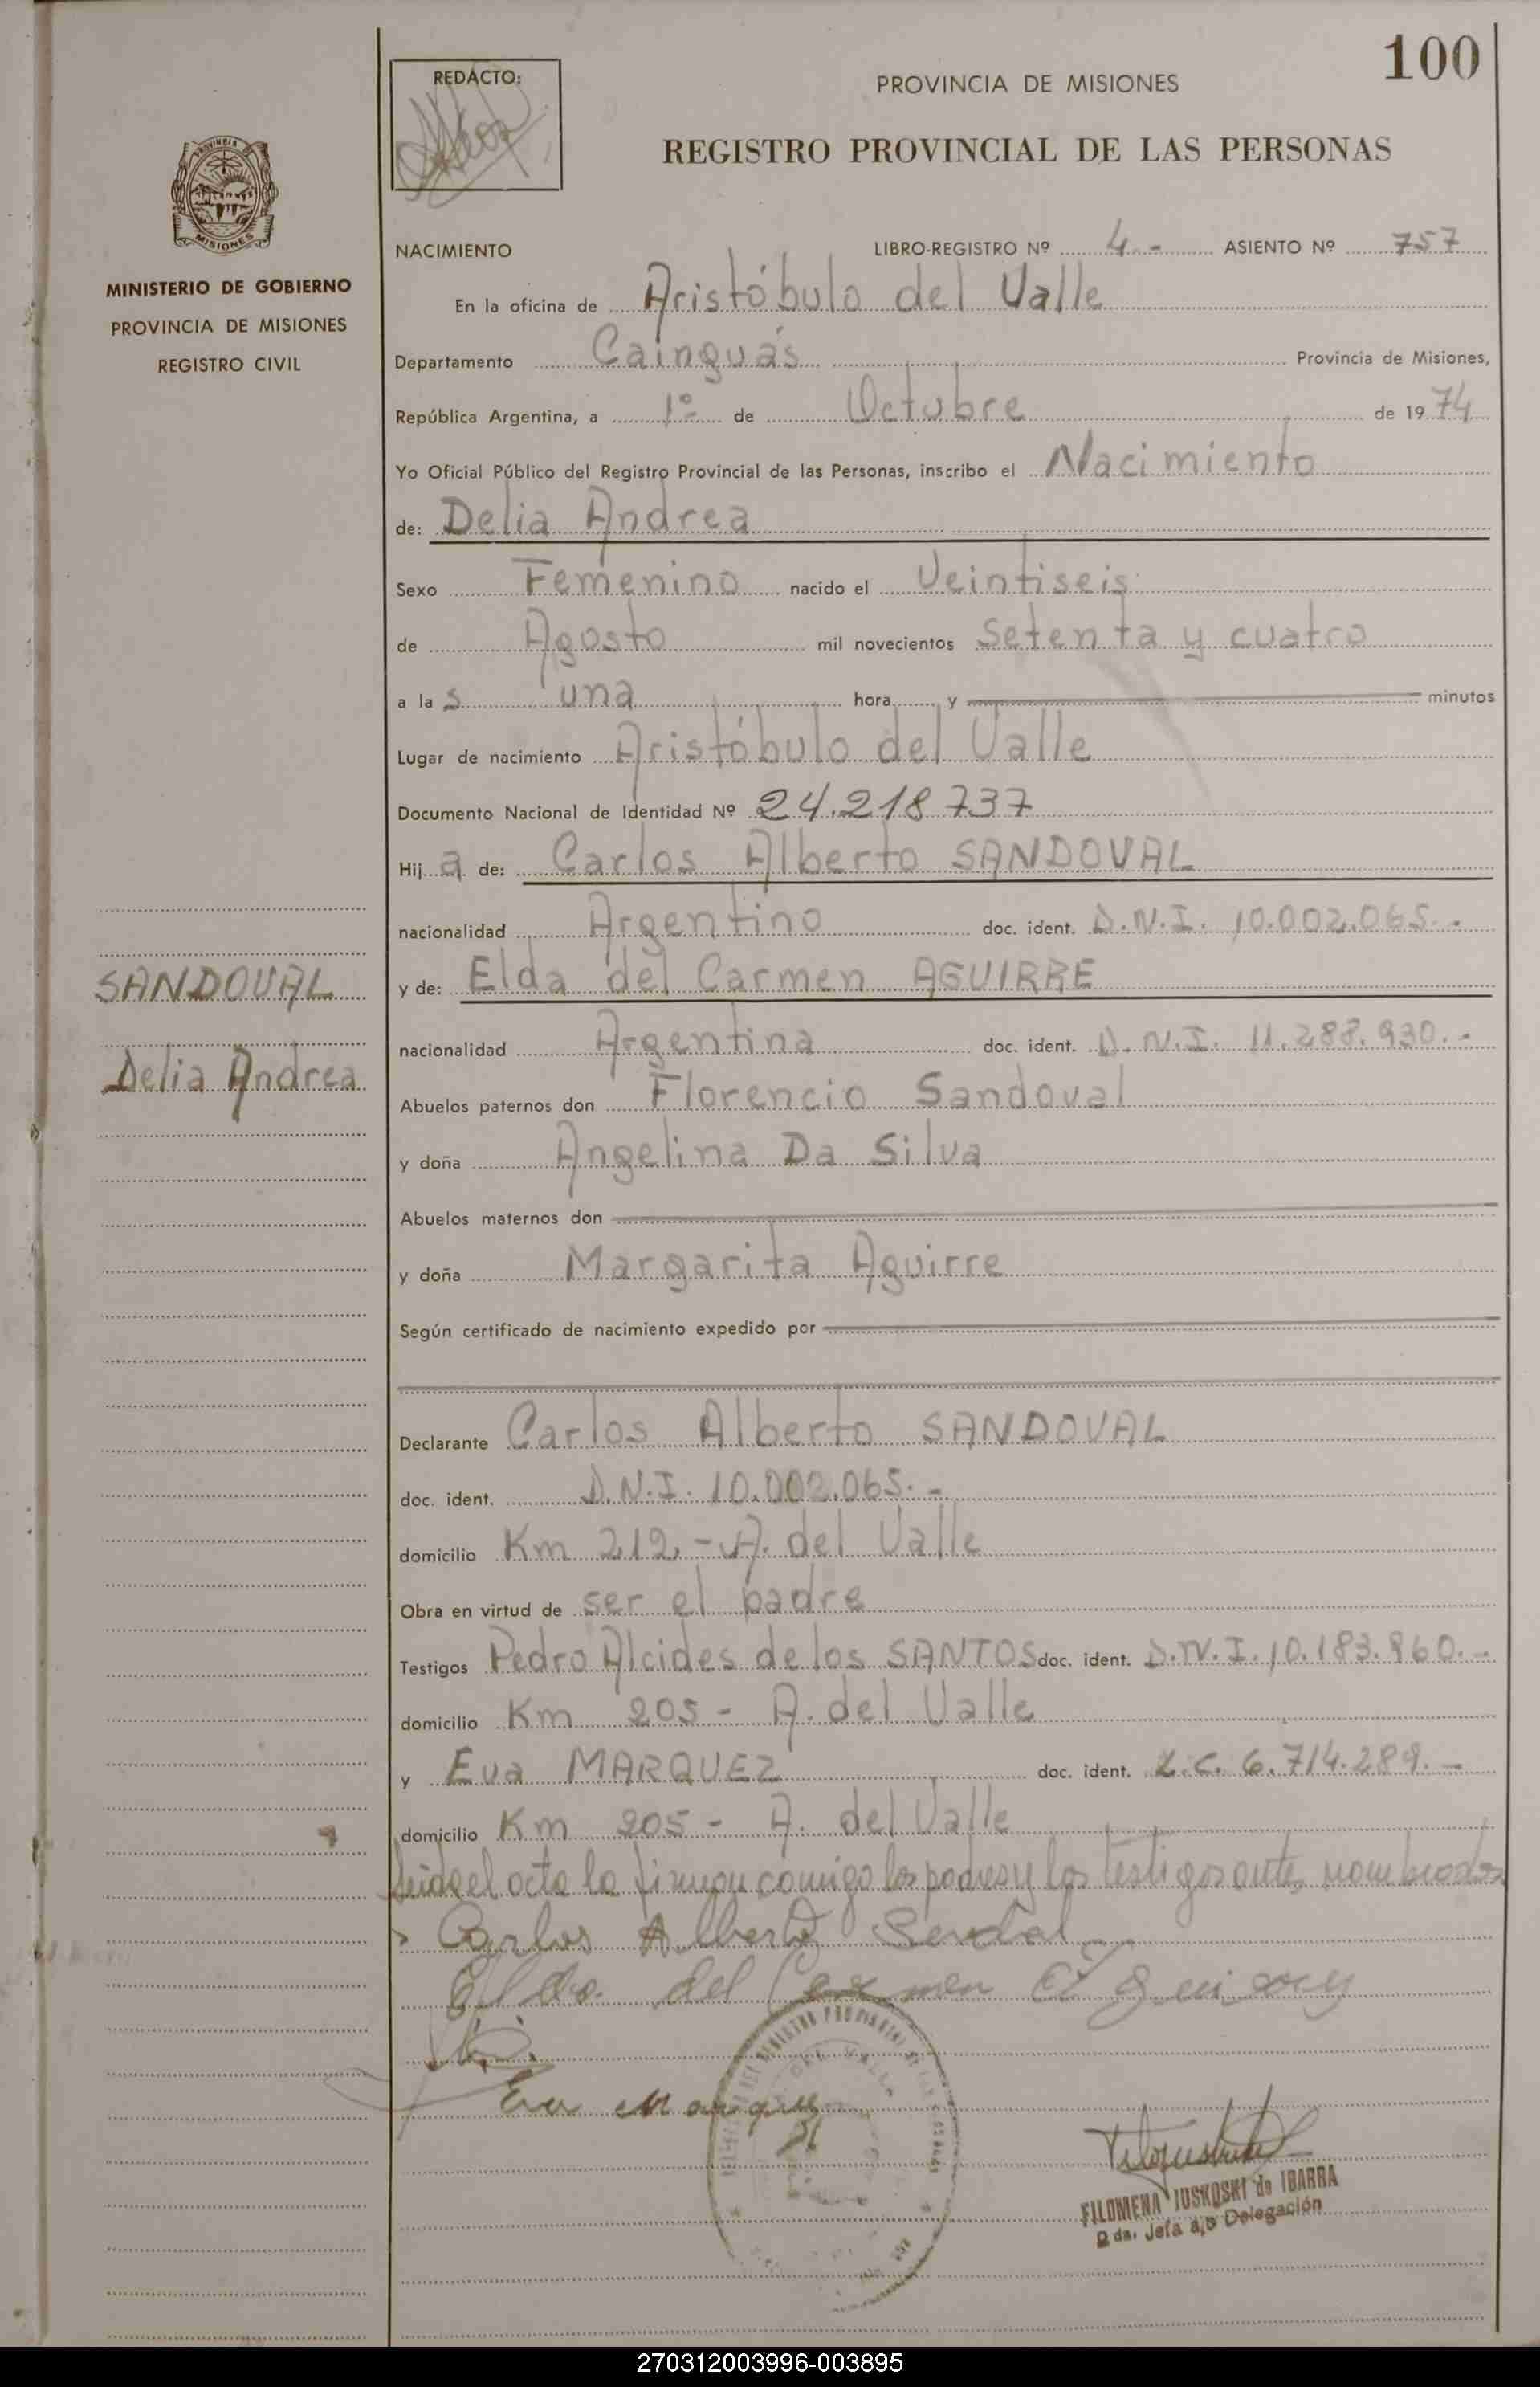 100
REDACTO:
PROVINCIA DE MISIONES
REGISTRO PROVINCIAL DE LAS PERSONAS
MISIONES
MINISTERIO DE GOBIERNO
PROVINCIA DE MISIONES
REGISTRO CIVIL
NACIMIENTO LIBRO-REGISTRO Nº 4.- ASIENTO Nº 757
En la oficina de Aristóbulo del Valle
Departamento Cainguás Provincia de Misiones,
República Argentina, a 1º de Octubre de 1974
Yo Oficial Público del Registro Provincial de las Personas, inscribo el Nacimiento
de: Delia Andrea
Sexo Femenino nacido el Veintiseis
de Agosto mil novecientos setenta y cuatro
a la s una hora y minutos
Lugar de nacimiento Aristóbulo del Valle
Documento Nacional de Identidad Nº 24.218.737
Hij a de: Carlos Alberto SANDOVAL
nacionalidad Argentino doc. ident. D.N.I. 10.002.065.-
SANDOVAL
y de: Elda del Carmen AGUIRRE
nacionalidad Argentina doc. ident. D.N.I. 11.288.930.-
Delia Andrea
Abuelos paternos don Florencio Sandoval
y doña Angelina Da Silva
Abuelos maternos don
y doña Margarita Aguirre
Según certificado de nacimiento expedido por
Declarante Carlos Alberto SANDOVAL
doc. ident. D.N.I. 10.002.065.-
domicilio Km 212.- A. del Valle
Obra en virtud de ser el padre
Testigos Pedro Alcides de los SANTOS doc. ident. D.N.I. 10.183.960.-
domicilio Km 205 - A. del Valle
y Eva MARQUEZ doc. ident. L.C. 6.714.289.-
domicilio Km 205 - A. del Valle
Leida el acta la firman comigo los padres y los testigos antes nombrados
Carlos Alberto
Elda del Carmen
Eva Marquez
FILOMENA IUSKOSKI de IBARRA
2 da. Jefa a/c Delegación
270312003996-003895